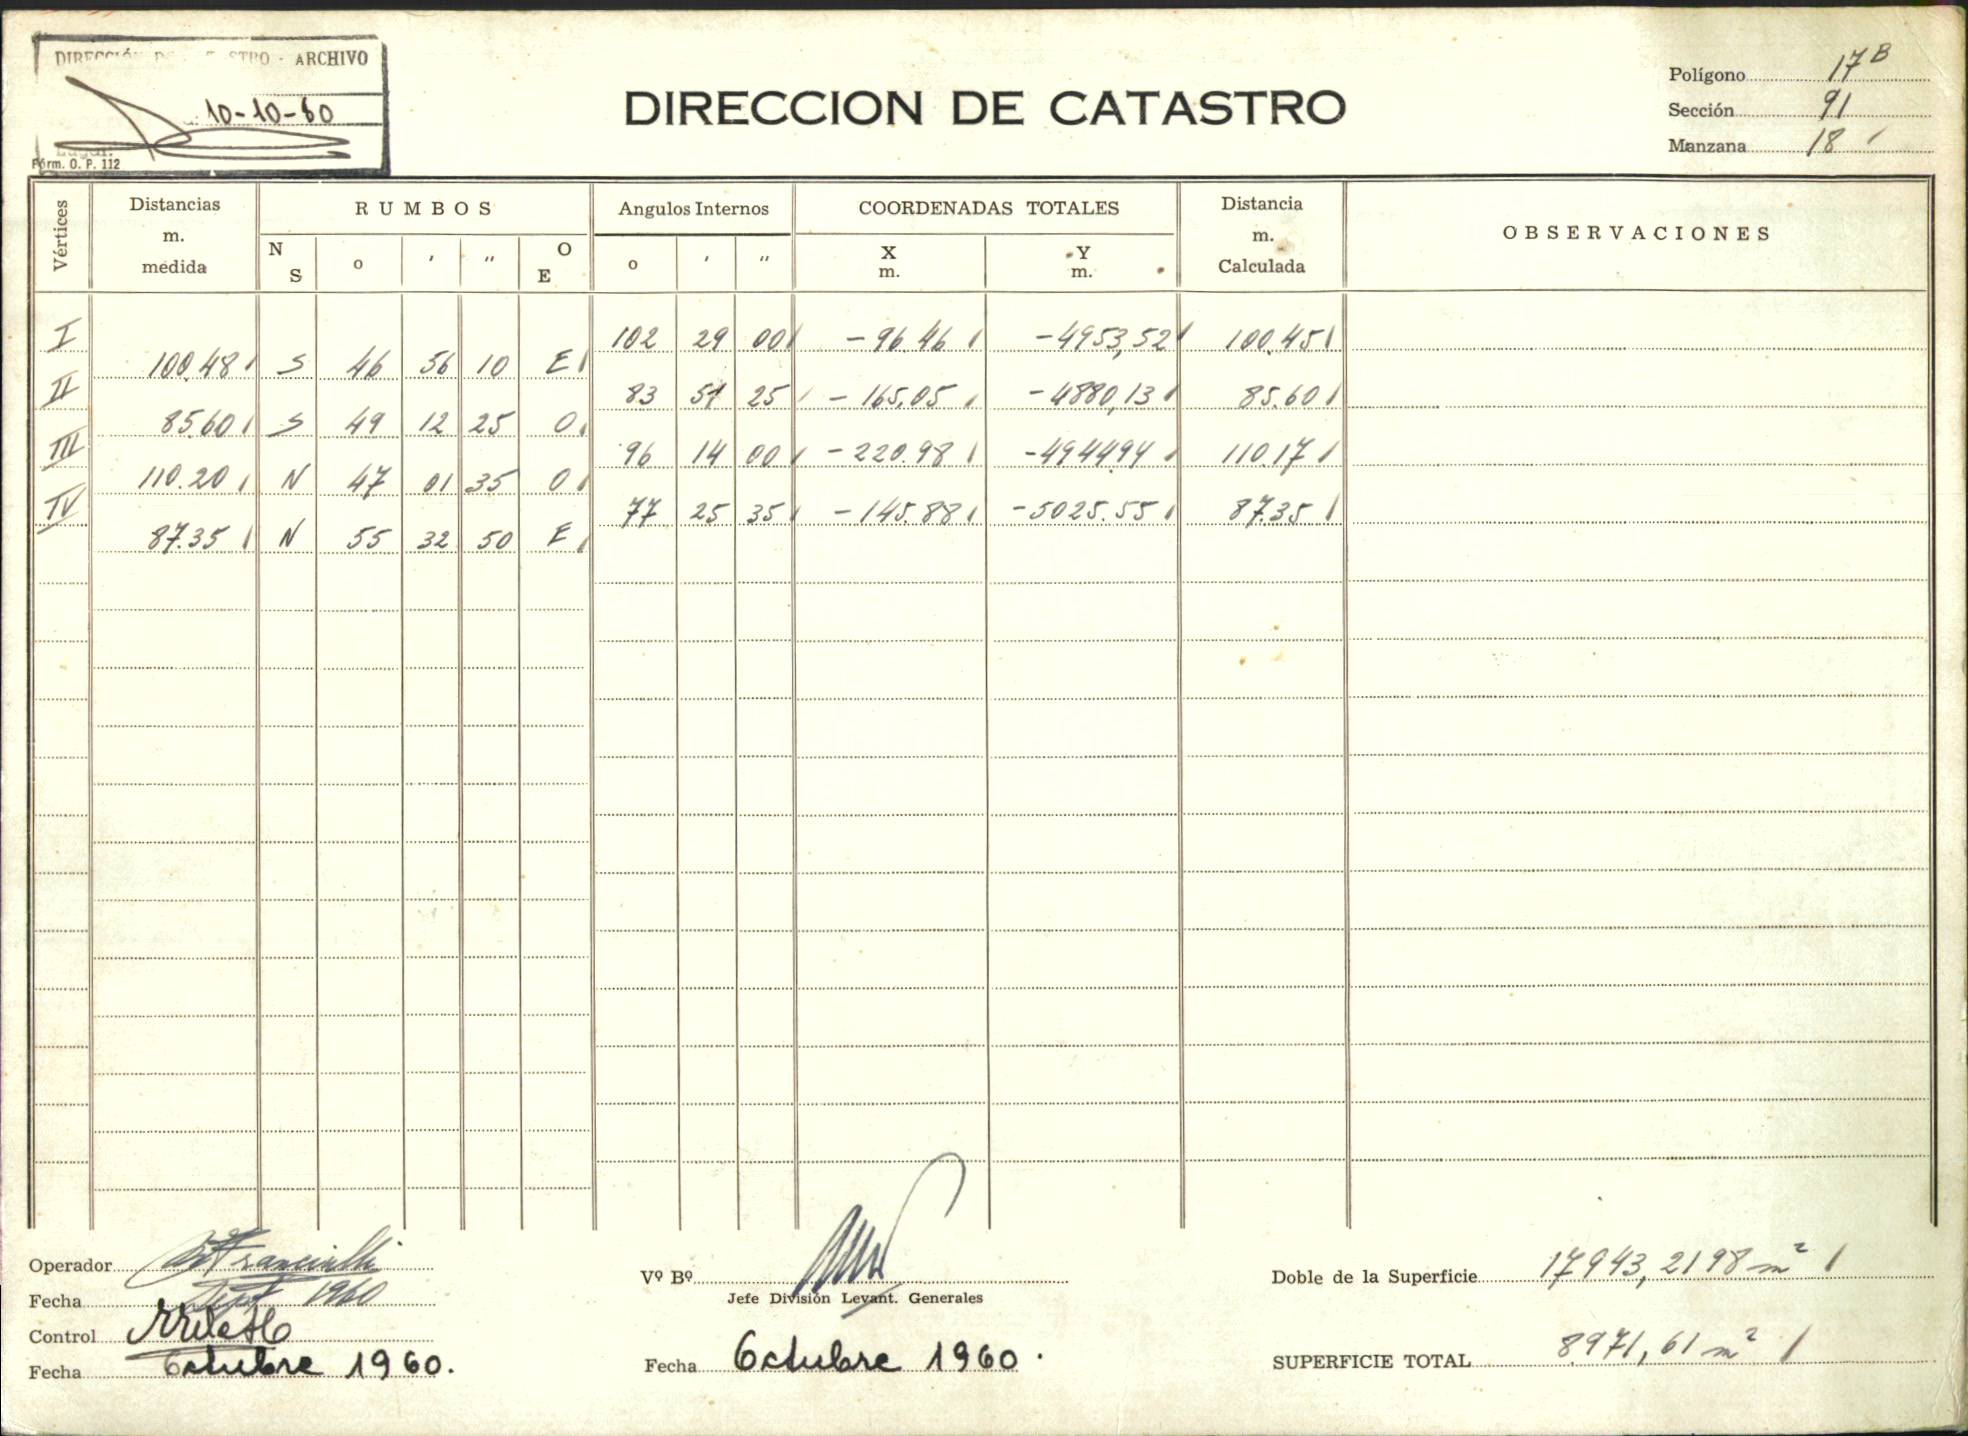 DIRECCIÓN DE CATASTRO - ARCHIVO
10-10-60
Lugar:
Fórm. O. P. 112
DIRECCION DE CATASTRO
Polígono 17 B
Sección 91
Manzana 18
Vértices
Distancias
m.
medida
RUMBOS
N
S
o
'
"
O
E
Angulos Internos
o
'
"
COORDENADAS TOTALES
X
m.
Y
m.
Distancia
m.
Calculada
OBSERVACIONES
I 102 29 00 -96.46 -4953,52 100.45
100.48 S 46 56 10 E
II 83 51 25 -165.05 -4880,13 85.60
85.60 S 49 12 25 O
III 96 14 00 -220.98 -4944.94 110.17
110.20 N 47 01 35 O
IV 77 25 35 -145.88 -5025.55 87.35
87.35 N 55 32 50 E
Operador
Fecha Sept 1960
Control
Fecha Octubre 1960.
Vº Bº
Jefe División Levant. Generales
Fecha Octubre 1960.
Doble de la Superficie 17943,2198 m²
SUPERFICIE TOTAL 8971,61 m²